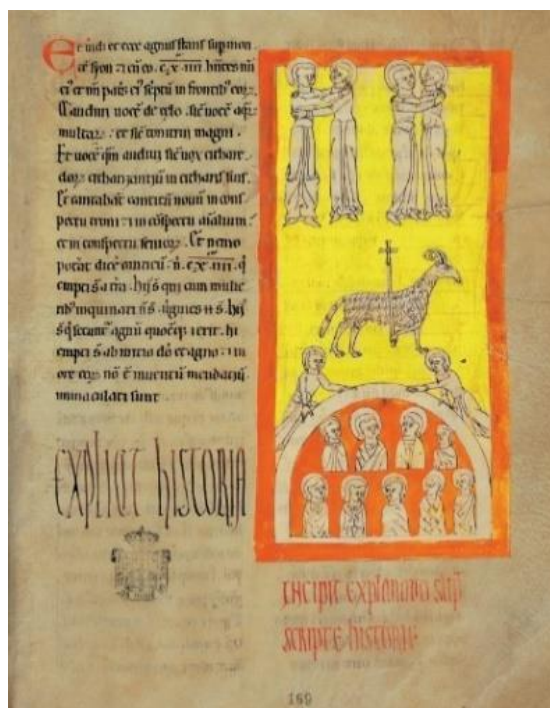 Et uidi et ecce agnus stans sup mon
tē syon ⁊ cū eo. c̄x̄. iiii hñtes nm̄
ei' et nm̄ pat̄s ei' sc̄ptū in frontib' eoꝝ.
Et audiui uocē de celo. sic̄ uocē aqꝝ
multaꝝ. et sic̄ tonitrui magni.
Et uocē qm̄ audiui sic̄ uox cithare
doꝝ citharizantiū in citharis suis.
Et cantabāt canticū nouū in cons
pectu troni ⁊ in cōspectu aīalium.
et in conspectu senioꝝ. Et nemo
potāt dicē canticū. n̄. c̄x̄. iiii. q̄
empti s̄ a t̄ra. hii s̄ qui cum mulie
rib' inquinati n̄ s̄. uirgines s̄. hii
s̄ q̄ secunt' agnū quocūq; ierit. hi
empti s̄ ab initio dō et agno. ⁊ in
ore eoꝝ nō ē inuentū mendatiū.
immaculati sunt
EXPLICIT hISTORIA
INCIPIT EXPLANATIO SUP̄
SCRIPTE hISTORIE
169